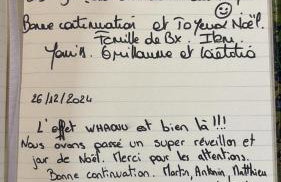 Bonne continuation et Joyeux Noël.
Famille de Bx.
Guillaume et Laëtitia
26/12/2024
L'effet WHAOU est bien là !!!
Nous avons passé un super réveillon et
jour de Noël. Merci pour les attentions.
Bonne continuation. Martin, Antonin, Matthieu